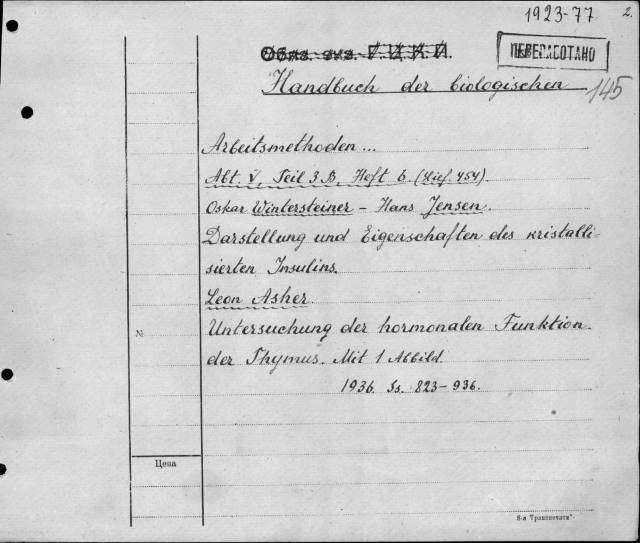 1923-77. 2.
Обяз. экз. Г.Ц.К.П.
ПЕРЕРАБОТАНО
Handbuch der biologischen
145
Arbeitsmethoden...
Abt. V, Teil 3 B, Heft 6. (Lief. 454).
Oskar Wintersteiner - Hans Jensen.
Darstellung und Eigenschaften des kristalli-
sierten Insulins.
Leon Asher.
Untersuchung der hormonalen Funktion
der Thymus. Mit 1 Abbild.
1936. Ss. 823-936.
№
Цена
8-я Транспечати".